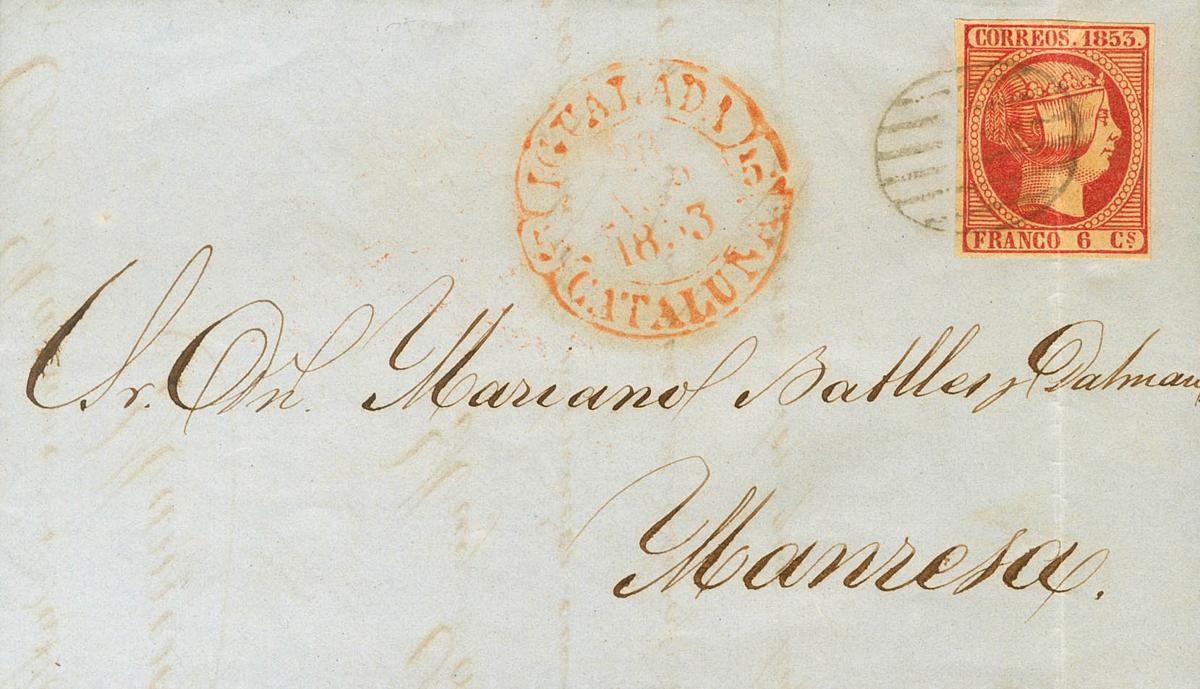 CORREOS. 1853.
FRANCO 6 Cs
IGUALADA
28
1853
CATALUÑA
Sr. Dn. Mariano Batlles y Dalmau
Manresa.